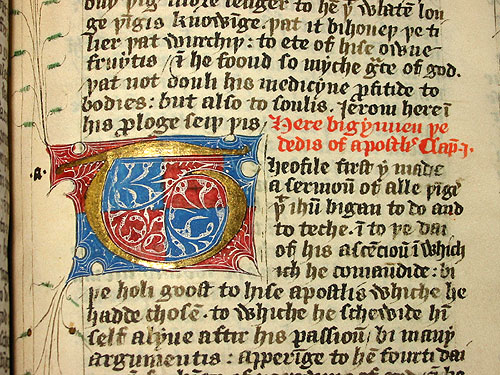 ony þīg more lenger to hē ẏ whatē lon
ge þīgis knowīge. þat it bihoueþ þe ti
lier þat wurchiþ: to ete of hise owne
fruytis / ī he foond so myche gͣce of god.
þat not oonli his medicyne profitide to
bodies: but also to soulis. Jerom here ī
his prologe seiþ þis
Here bigynneþ þe
dedis of apostlis Cap. j.
.a.
Theofile first y made
a sermoū of alle þīgis
þͭ ihū bigan to do and
to teche. ī to þe dai
of his ascencioū ī which
ich he comandide: bi
þe holi goost to hise apostlis whiche he
hadde chosē. to whiche he schewide him
self alyue aftir his passioū / bi many
argumentis: apperīge to hē fourti dai